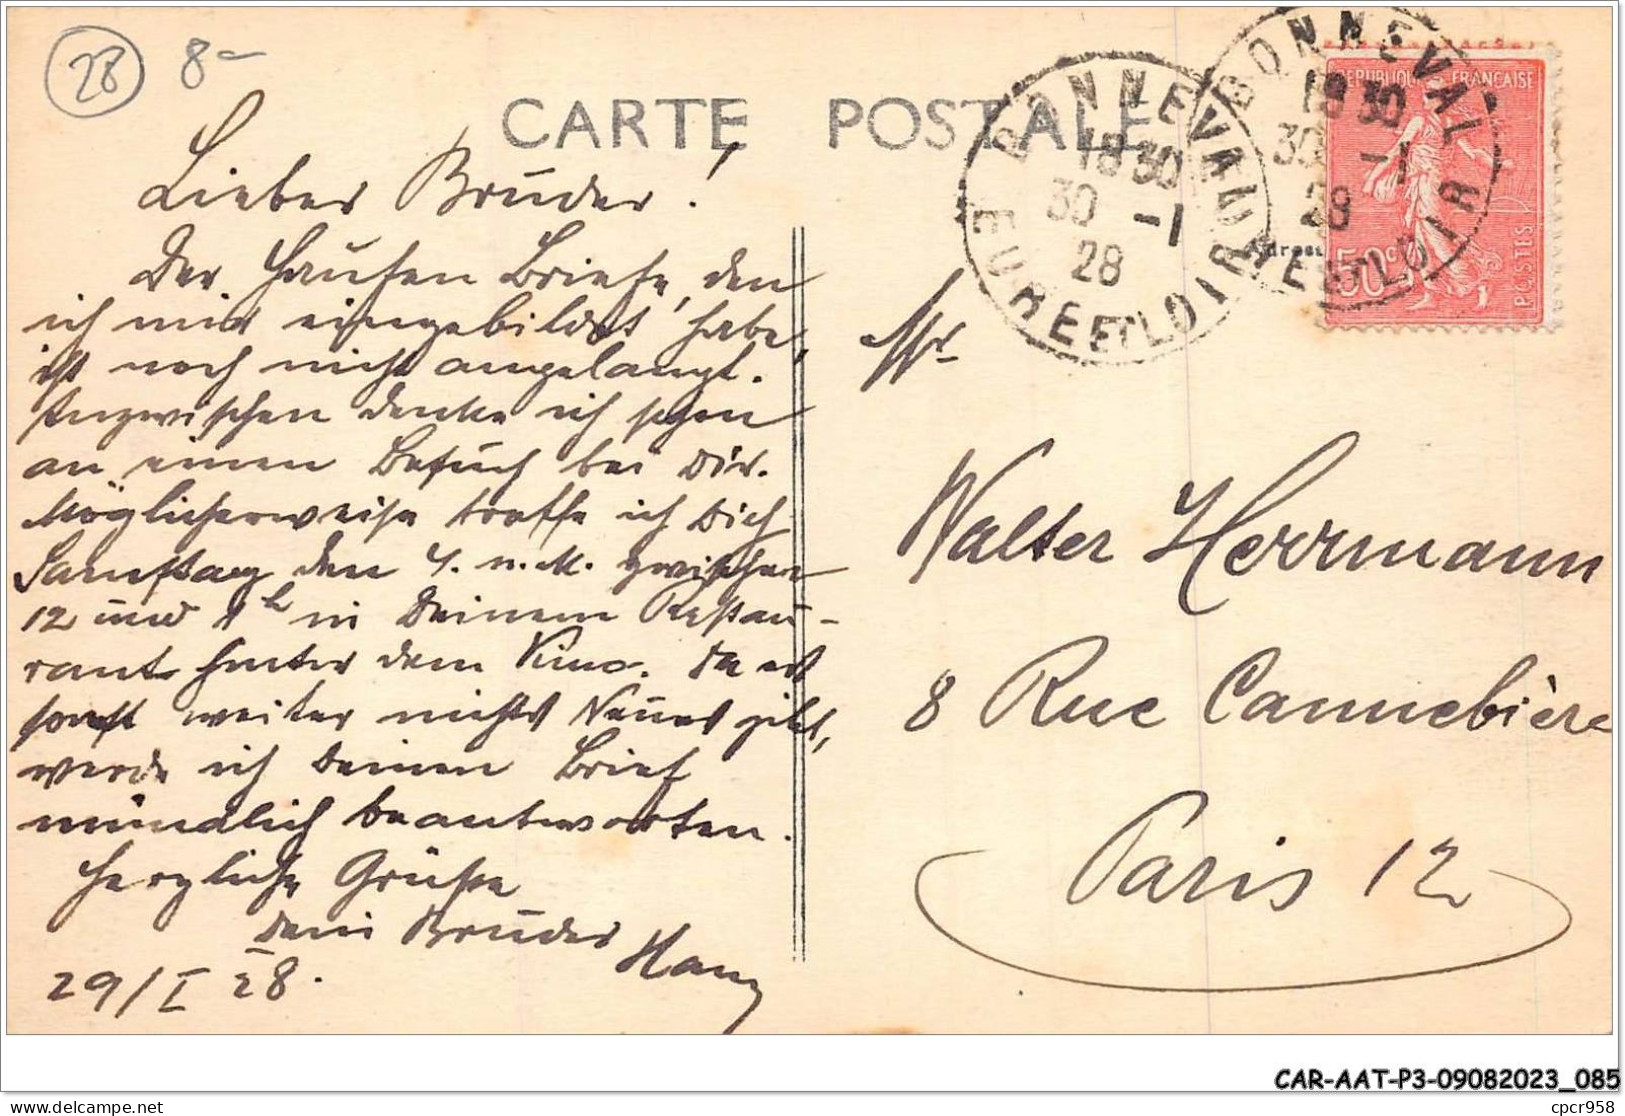 28 8-
CARTE POSTALE
BONNEVAL
18 30
30 -1
28
EURE ET LOIR
BONNEVAL
18 30
30 -1
28
EURE ET LOIR
REPUBLIQUE FRANÇAISE
50c
POSTES
Adresse
Lieber Bruder!
Der Haufen Briefe, den
ich mir eingebildet habe,
ist noch nicht angelangt.
Inzwischen denke ich schon
an einen Besuch bei Dir.
Möglicherweise treffe ich Dich
Samstag den 4. n. M. zwischen
12 und 1h in Deinem Restau-
rant hinter dem Kino. Da es
sonst weiter nichts Neues gibt,
werde ich Deinen Brief
mündlich beantworten.
Herzliche Grüße
Dein Bruder
Hans
29/I 28.
Mr
Walter Herrmann
8 Rue Cannebière
Paris 12
CAR-AAT-P3-09082023_085
delcampe.net
cpcr958